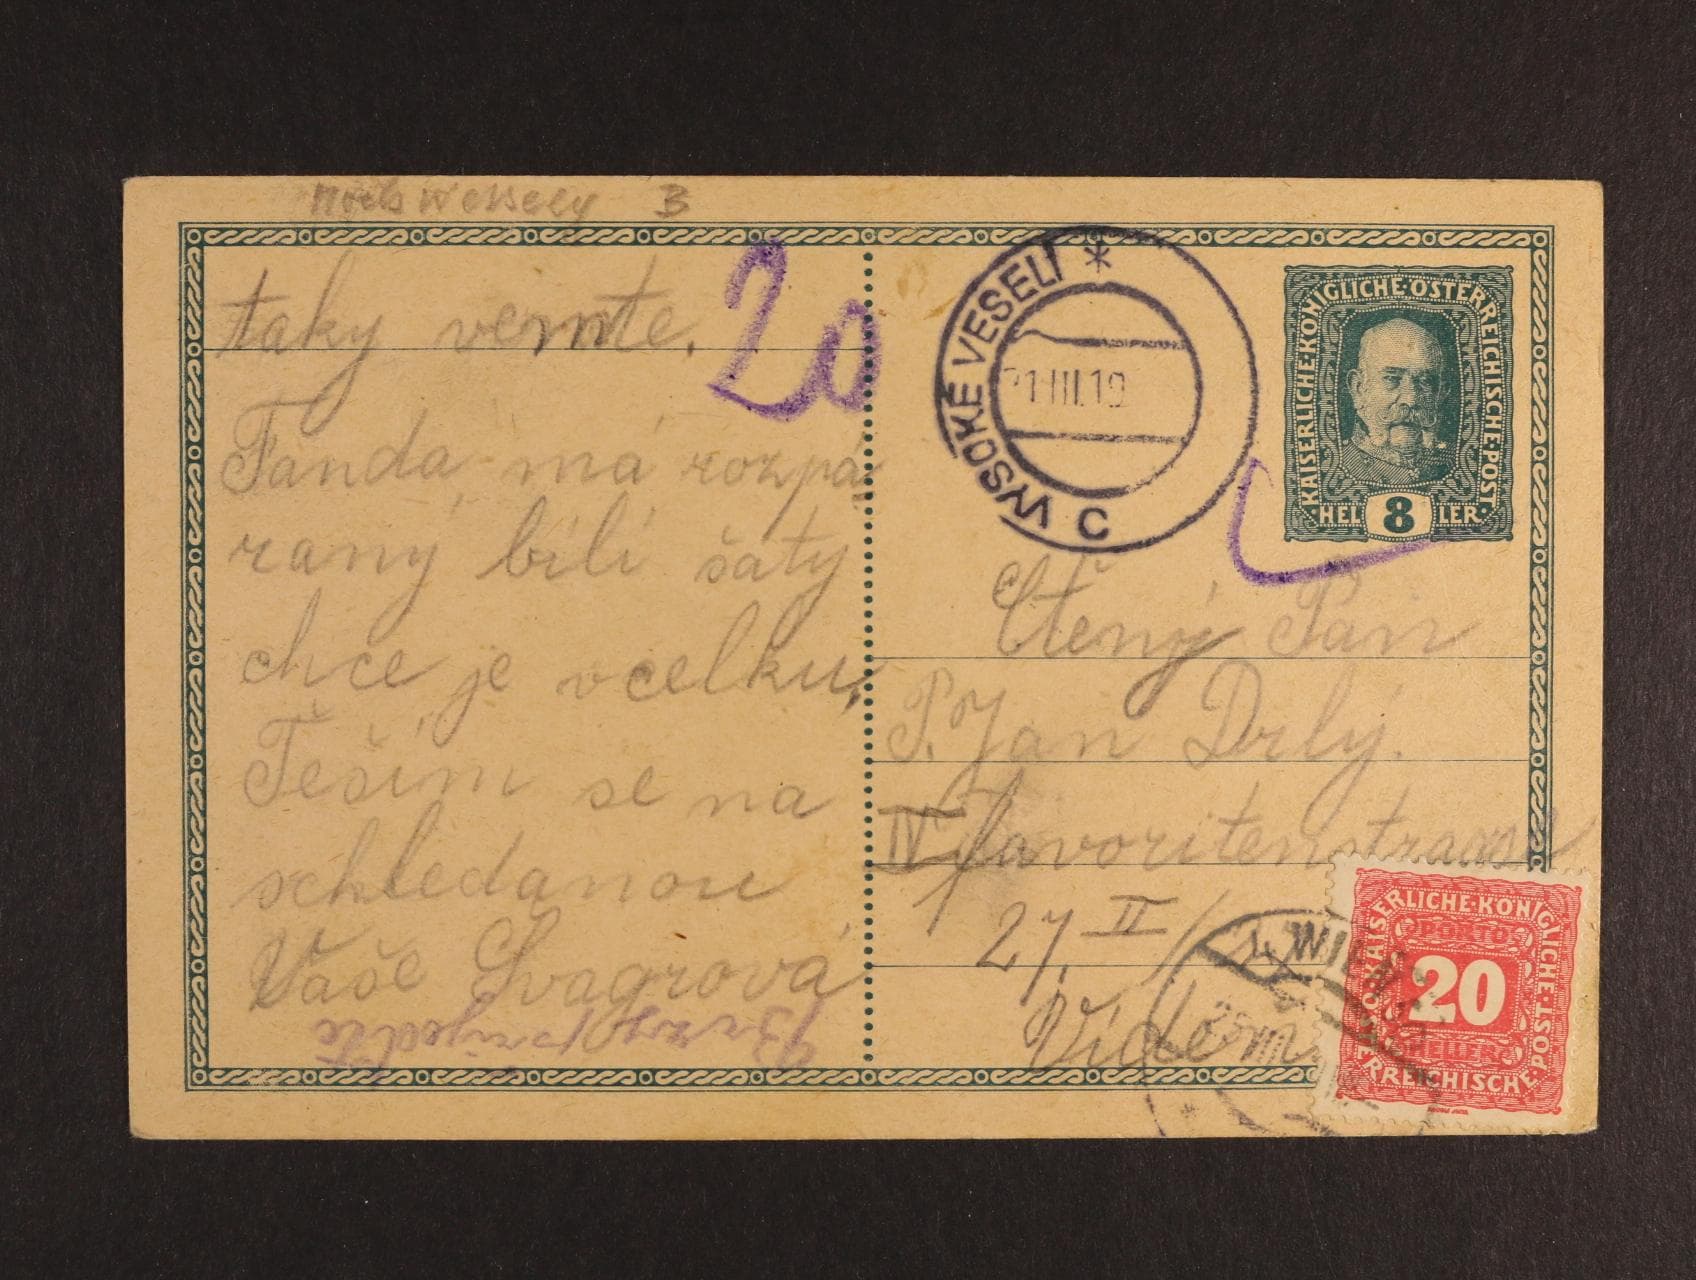 Hoch Wessely B
taky vemte.
20
Fanda, má rozpá
raný bílí šaty
chce je vcelku,
Těším se na
schledanou
Vaše Švagrová
Brzy přijedte
C VYSOKÉ VESELÍ *
21.III.19
KAISERLICHE·KÖNIGLICHE·ÖSTERREICHISCHE·POST·
HELLER
8
Ctěný Pán
P. Jan Drlý.
IV favoritenstrasse
27. II/
Vídem
WIEN
KAISERLICHE·KÖNIGLICHE·ÖSTERREICHISCHE·POST
PORTO
20
HELLER